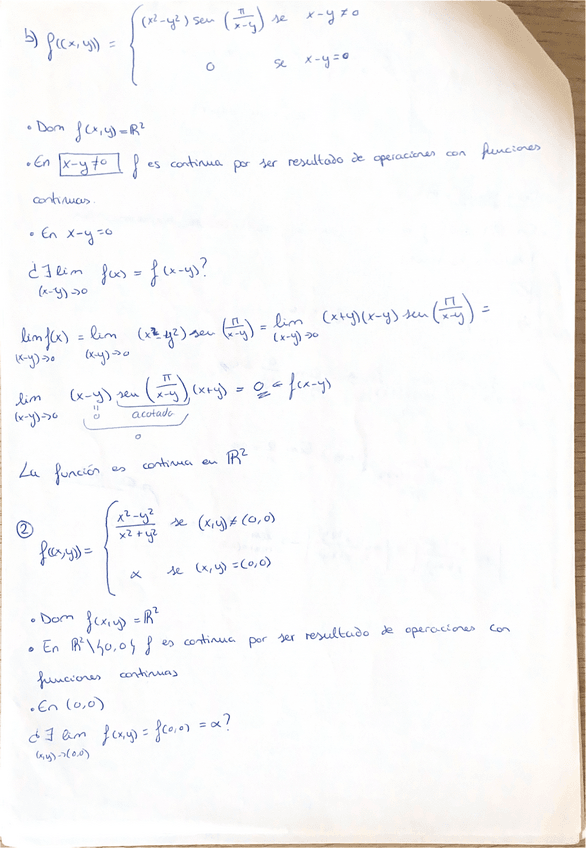 b) f((x,y)) = { (x²-y²) sen (π/(x-y)) se x-y ≠ 0
0 se x-y=0
• Dom f(x,y)=ℝ²
• En x-y≠0 f es continua por ser resultado de operaciones con funciones
continuas.
• En x-y=0
¿∃ lim f(x) = f(x-y)?
(x-y)→0
lim f(x) = lim (x²-y²) sen (π/(x-y)) = lim (x+y)(x-y) sen (π/(x-y)) =
(x-y)→0 (x-y)→0 (x-y)→0
lim (x-y) sen (π/(x-y)) (x+y) = 0 = f(x-y)
(x-y)→0 0 acotado
0
La función es continua en ℝ²
② f((x,y)) = { (x²-y²)/(x²+y²) se (x,y) ≠ (0,0)
α se (x,y) = (0,0)
• Dom f(x,y) = ℝ²
• En ℝ²\{0,0} f es continua por ser resultado de operaciones con
funciones continuas
• En (0,0)
¿∃ lim f(x,y) = f(0,0) = α?
(x,y)→(0,0)